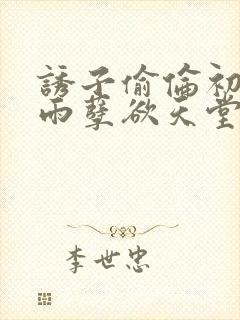 誘子偷倫初
雨孽欲天堂
李世忠